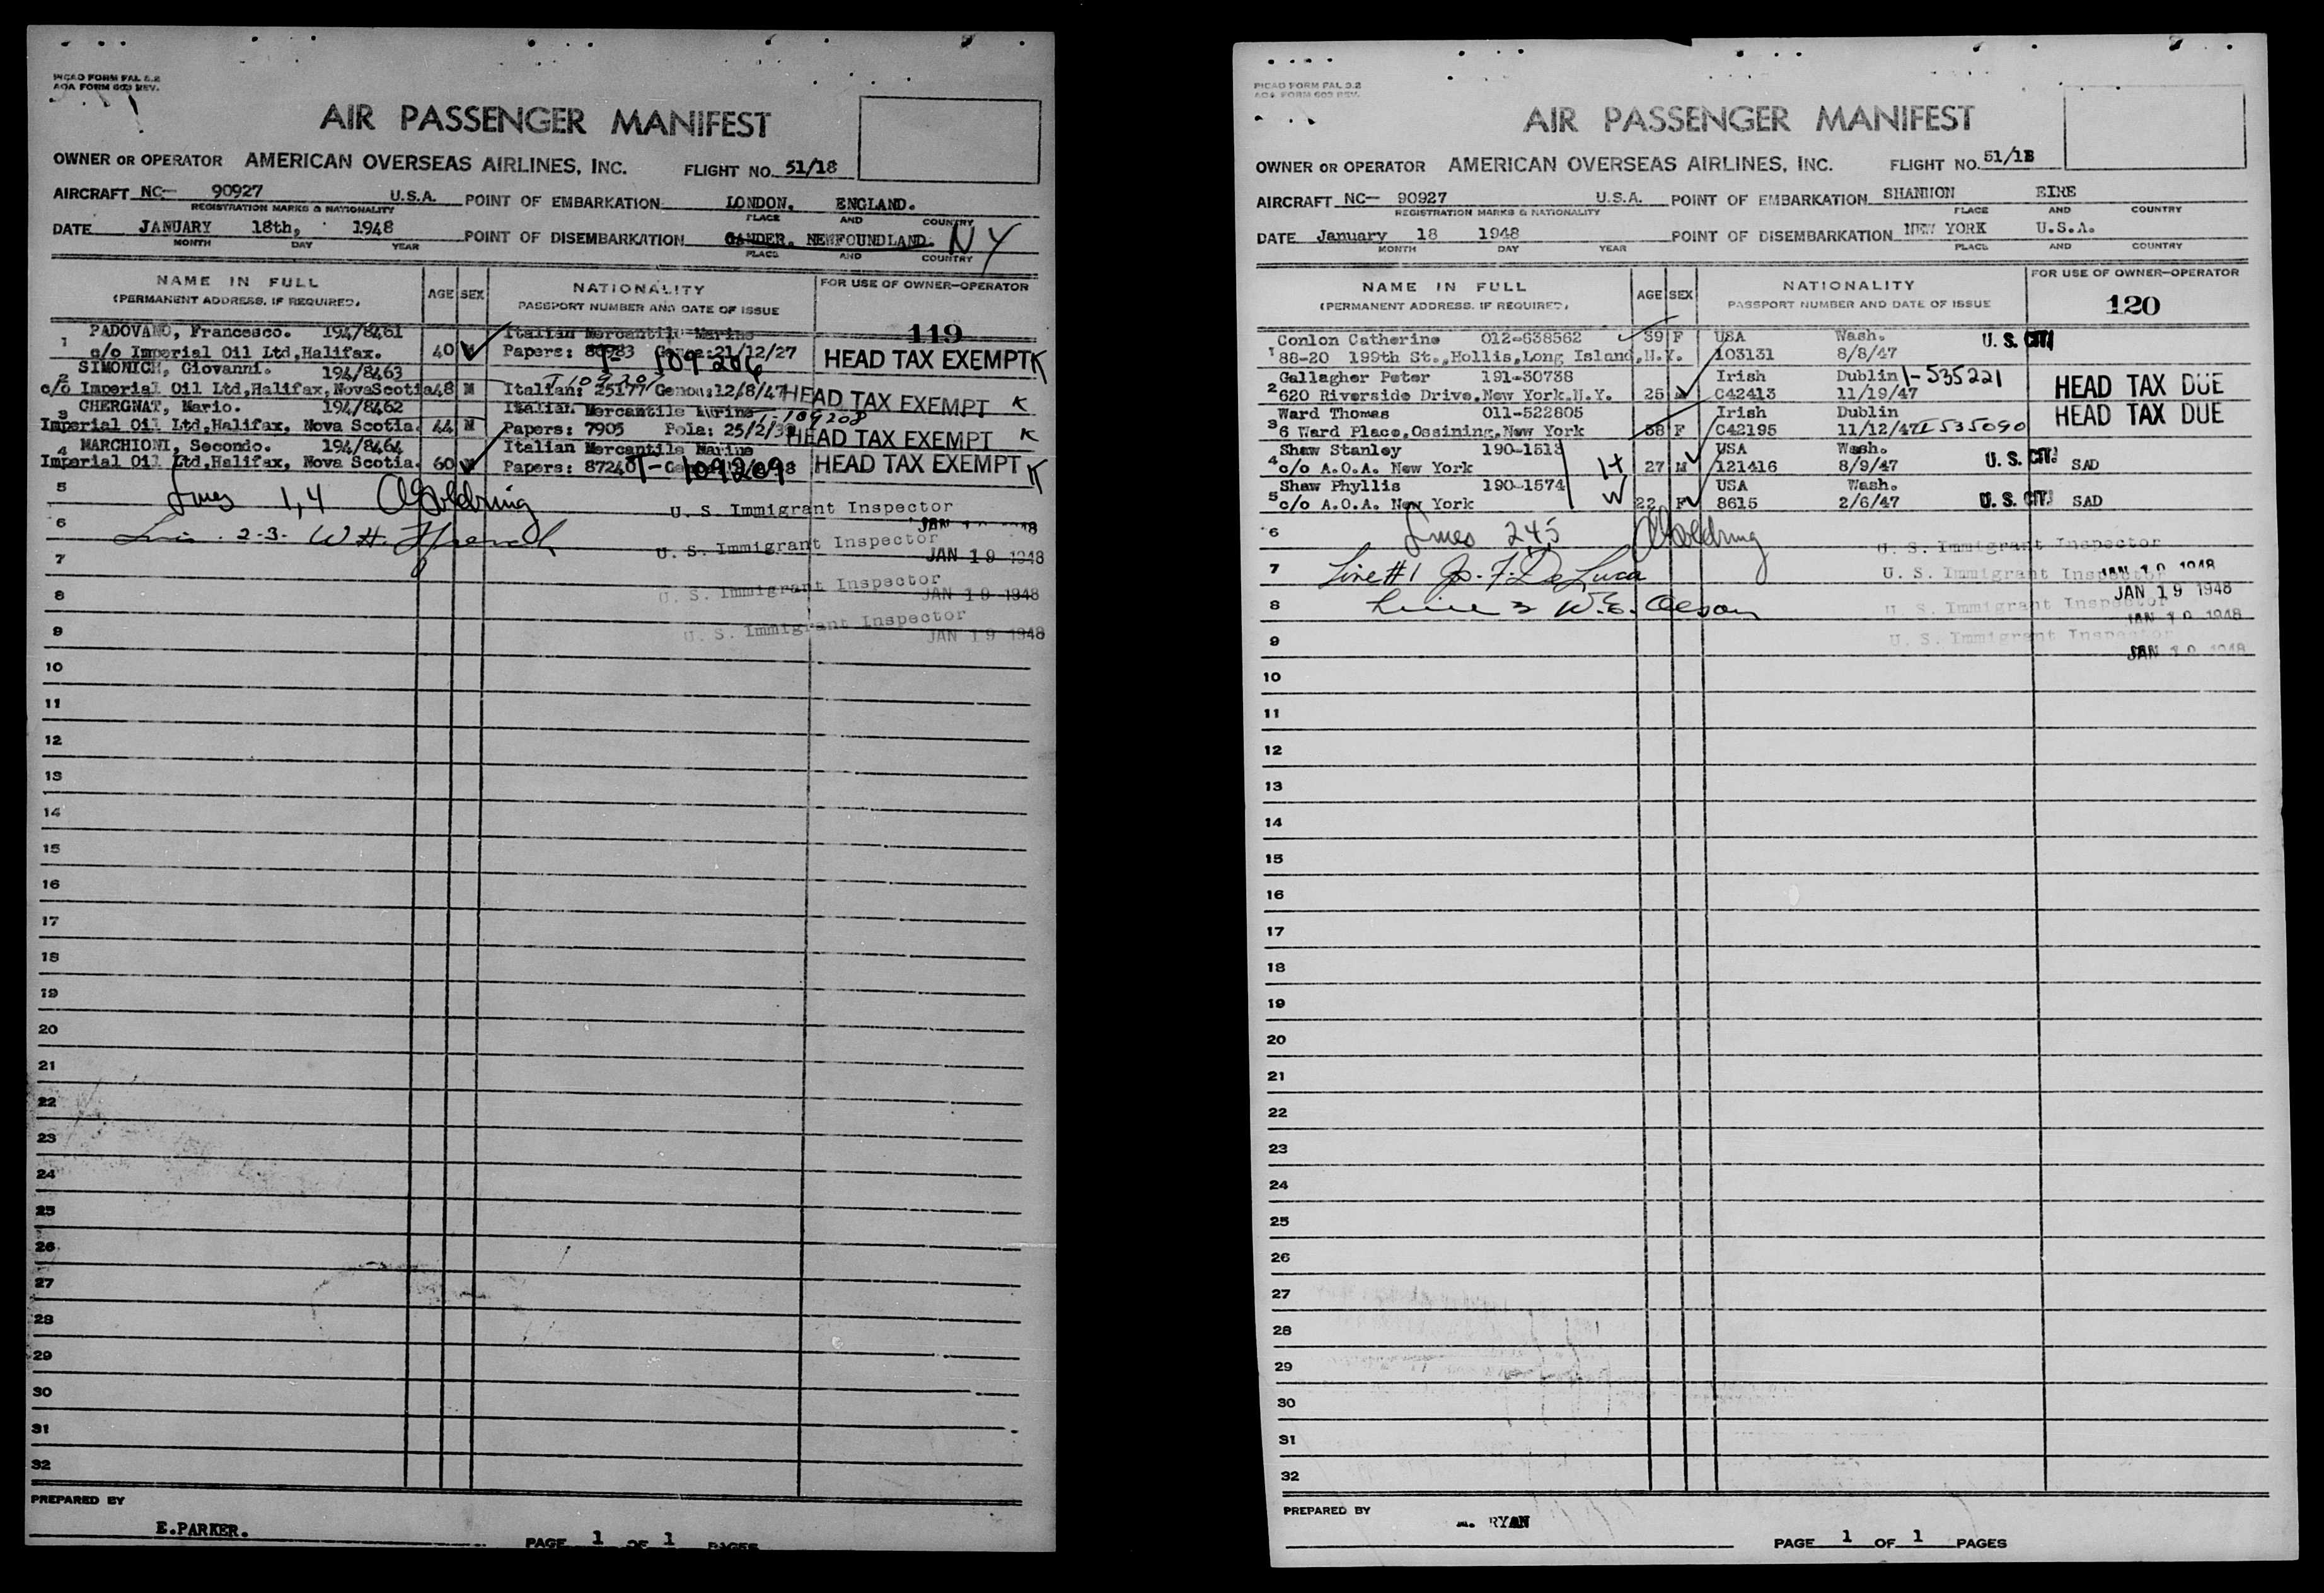 PICAO FORM PAL 3.2
AOA FORM 603 REV.
AIR PASSENGER MANIFEST
OWNER OR OPERATOR AMERICAN OVERSEAS AIRLINES, INC. FLIGHT NO. 51/18
AIRCRAFT NC- 90927 U.S.A. POINT OF EMBARKATION LONDON. ENGLAND.
REGISTRATION MARKS & NATIONALITY PLACE AND COUNTRY
DATE JANUARY 18th, 1948 POINT OF DISEMBARKATION GANDER. NEWFOUNDLAND. NY
MONTH DAY YEAR PLACE AND COUNTRY
NAME IN FULL AGE SEX NATIONALITY FOR USE OF OWNER-OPERATOR
(PERMANENT ADDRESS, IF REQUIRED) PASSPORT NUMBER AND DATE OF ISSUE
119
1 PADOVANO, Francesco. 194/8461 Italian Mercantile Marine
c/o Imperial Oil Ltd,Halifax. 40 M Papers: 80983 Genoa:21/12/27 T- 109206 HEAD TAX EXEMPT K
2 SIMONICH, Giovanni. 194/8463
c/o Imperial Oil Ltd,Halifax,NovaScotia 48 M Italian: 25177 Genoa:12/8/47 HEAD TAX EXEMPT K
3 CHERGNAT, Mario. 194/8462 Italian Mercantile Marine T-109208
Imperial Oil Ltd,Halifax, Nova Scotia. 44 M Papers: 7905 Pola: 25/2/ HEAD TAX EXEMPT K
4 MARCHIONI, Secondo. 194/8464 Italian Mercantile Marine
Imperial Oil Ltd,Halifax, Nova Scotia. 60 M Papers: 87240 T-109209 HEAD TAX EXEMPT K
5 Lines 1,4 A Goldring U. S. Immigrant Inspector
JAN 19 1948
6 2-3. W.H. U. S. Immigrant Inspector
7 JAN 19 1948
U. S. Immigrant Inspector
8 JAN 19 1948
U. S. Immigrant Inspector
9 JAN 19 1948
10
11
12
13
14
15
16
17
18
19
20
21
22
23
24
25
26
27
28
29
30
31
32
PREPARED BY
E.PARKER.
PAGE 1 OF 1 PAGES
PICAO FORM PAL 3.2
AOA FORM 603 REV.
AIR PASSENGER MANIFEST
OWNER OR OPERATOR AMERICAN OVERSEAS AIRLINES, INC. FLIGHT NO. 51/18
AIRCRAFT NC- 90927 U.S.A. POINT OF EMBARKATION SHANNON EIRE
REGISTRATION MARKS & NATIONALITY PLACE AND COUNTRY
DATE January 18 1948 POINT OF DISEMBARKATION NEW YORK U.S.A.
MONTH DAY YEAR PLACE AND COUNTRY
NAME IN FULL AGE SEX NATIONALITY FOR USE OF OWNER-OPERATOR
(PERMANENT ADDRESS, IF REQUIRED) PASSPORT NUMBER AND DATE OF ISSUE
120
Conlon Catherine 012-638562 39 F USA Wash. U. S. CIT.
1 88-20 199th St.,Hollis,Long Island,N.Y. 103131 8/8/47
Gallagher Peter 191-30738 Irish Dublin I-535221
2 620 Riverside Drive,New York,N.Y. 26 M C42413 11/19/47 HEAD TAX DUE
Ward Thomas 011-522805 Irish Dublin HEAD TAX DUE
3 6 Ward Place,Ossining,New York 58 F C42195 11/12/47 I 535090
Shaw Stanley 190-1513 USA Wash.
4 c/o A.O.A. New York H 27 M 121416 8/9/47 U. S. CIT. SAD
Shaw Phyllis 190-1574 USA Wash.
5 c/o A.O.A. New York W 22 F 8615 2/6/47 U. S. CIT. SAD
6 Lines 245 A Goldring U. S. Immigrant Inspector
7 Line #1 Jos. F. DeLuca U. S. Immigrant Inspector JAN 19 1948
JAN 19 1948
8 Line 3 W.E. Olson U. S. Immigrant Inspector
JAN 19 1948
9 U. S. Immigrant Inspector
JAN 19 1948
10
11
12
13
14
15
16
17
18
19
20
21
22
23
24
25
26
27
28
29
30
31
32
PREPARED BY
RYAN
PAGE 1 OF 1 PAGES